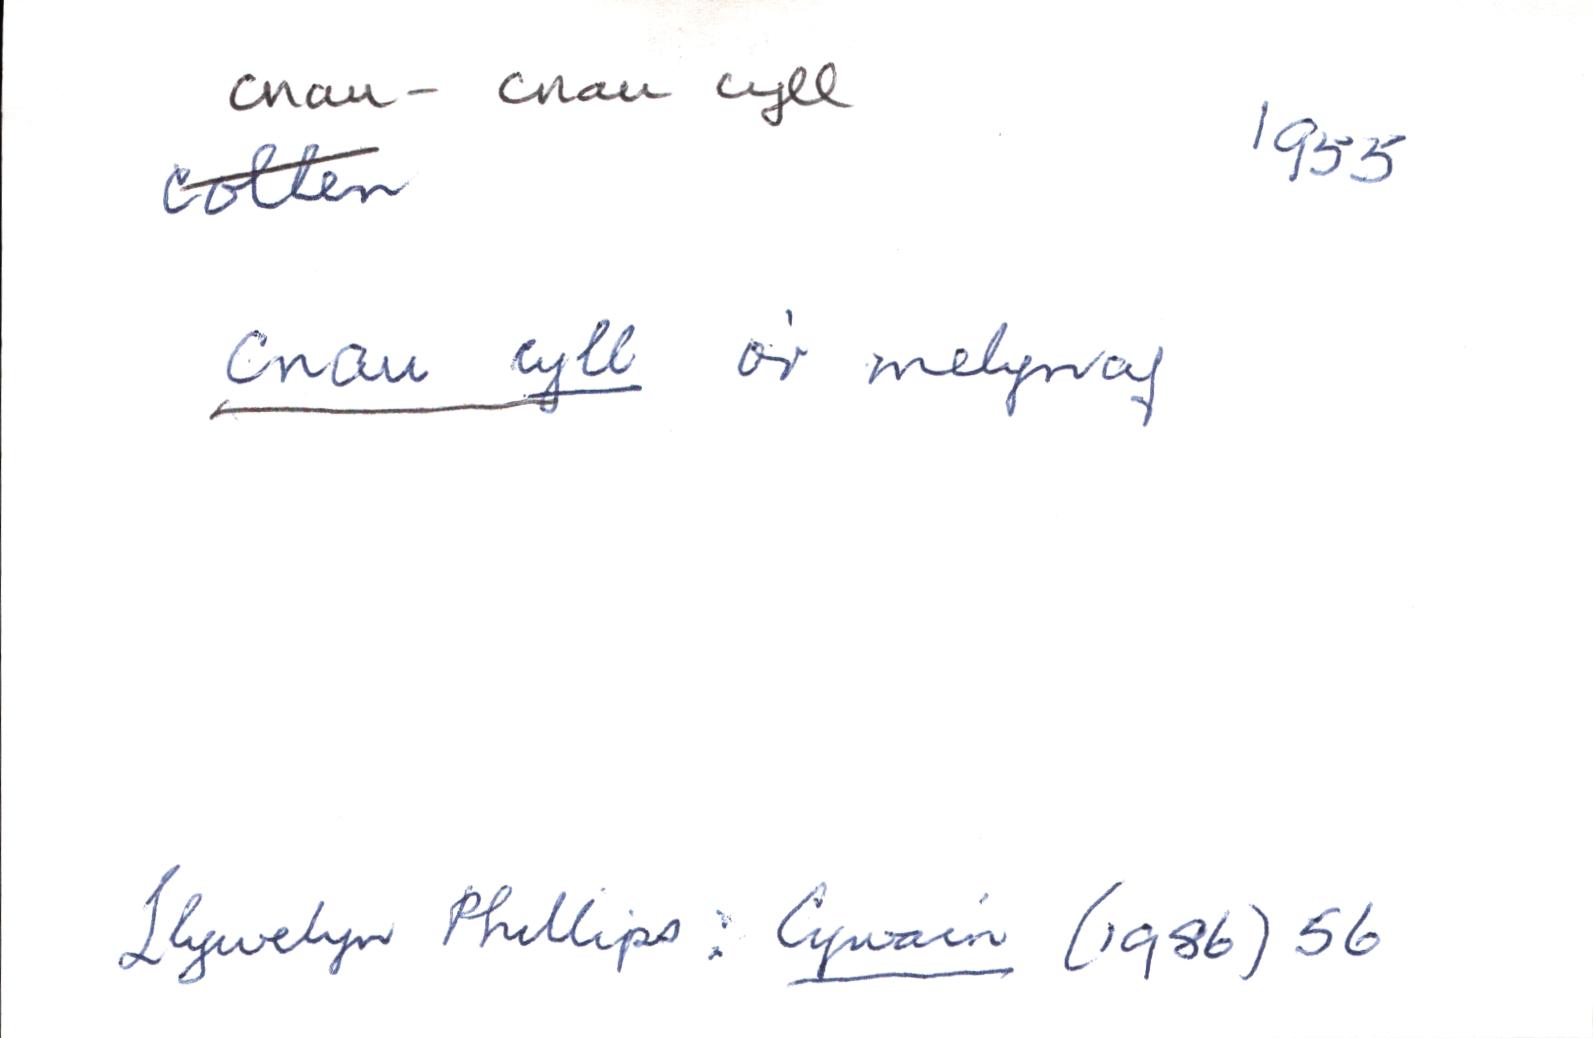 cnau - cnau cyll
collen
1955
Cnau cyll o'r melynaf
Llywelyn Phillips: Cywain (1986) 56